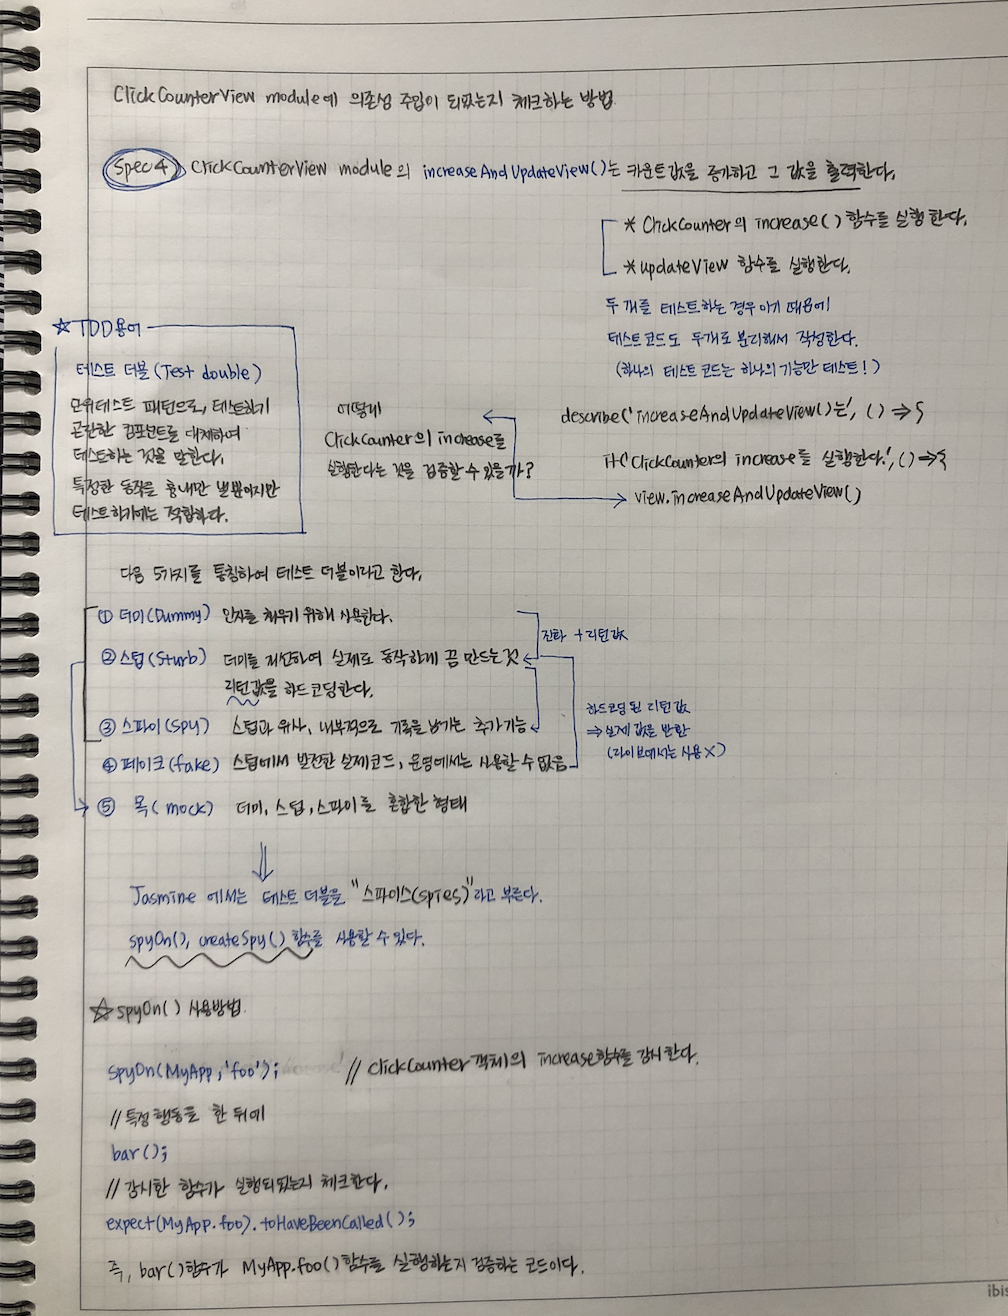 ClickCounterView module에 의존성 주입이 되있는지 체크하는 방법.
Spec4 ClickCounterView module의 increaseAndUpdateView()는 카운트값을 증가하고 그 값을 출력한다.
* ClickCounter의 increase() 함수를 실행한다.
* updateView 함수를 실행한다.
두 개를 테스트하는 경우이기 때문에
테스트코드도 두개로 분리해서 작성한다.
(하나의 테스트 코드는 하나의 기능만 테스트!)
☆ TDD용어
테스트 더블(Test double)
단위테스트 패턴으로, 테스트하기
곤란한 컴포넌트를 대체하여
테스트하는 것을 말한다.
특정한 동작을 흉내만 낼뿐이지만
테스트하기에는 적합하다.
어떻게
ClickCounter의 increase를
실행한다는 것을 검증할 수 있을까?
describe('increaseAndUpdateView()는', () => {
it('ClickCounter의 increase를 실행한다.', () => {
view.increaseAndUpdateView()
다음 5가지를 통칭하여 테스트 더블이라고 한다.
① 더미(Dummy) 인자를 채우기 위해 사용한다.
진화 + 리턴값
② 스텁(Sturb) 더미를 개선하여 실제로 동작하게 끔 만드는 것
리턴값을 하드코딩한다.
③ 스파이(Spy) 스텁과 유사, 내부적으로 기록을 남기는 추가기능
하드코딩 된 리턴값
⇒ 실제 값을 반환
(라이브에서는 사용 X)
④ 페이크(fake) 스텁에서 발전한 실제코드, 운영에서는 사용할 수 없음
⑤ 목(mock) 더미, 스텁, 스파이를 혼합한 형태
Jasmine 에서는 테스트 더블을 "스파이스(spies)"라고 부른다.
spyOn(), createSpy() 함수를 사용할 수 있다.
☆ spyOn() 사용방법
spyOn(MyApp, 'foo'); // ClickCounter 객체의 increase함수를 감시한다.
// 특정 행동을 한 뒤에
bar();
// 감시한 함수가 실행되있는지 체크한다.
expect(MyApp.foo).toHaveBeenCalled();
즉, bar()함수가 MyApp.foo() 함수를 실행하는지 검증하는 코드이다.